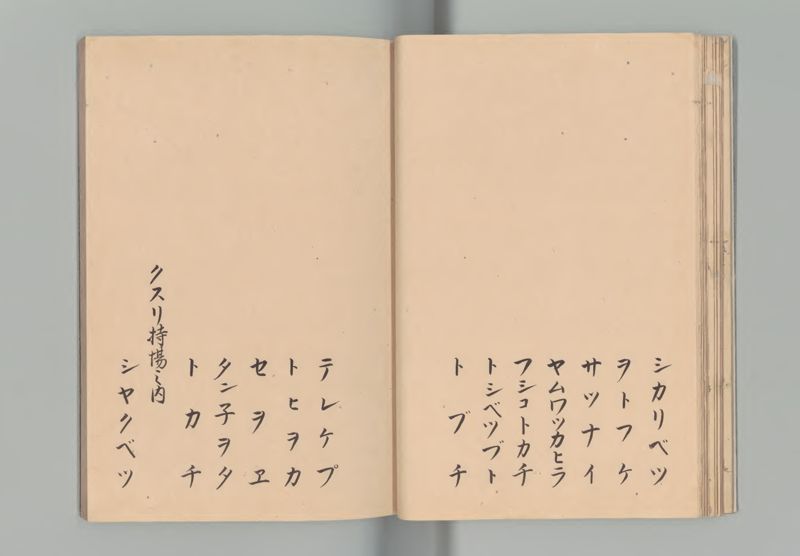 シカリベツ
ヲトフケ
サツナイ
ヤムワツカヒラ
フシコトカチ
トシベツブト
トブチ
テレケプ
トヒヲカ
セヲヱ
タン子ヲタ
トカチ
クスリ持場之内
シヤクベツ